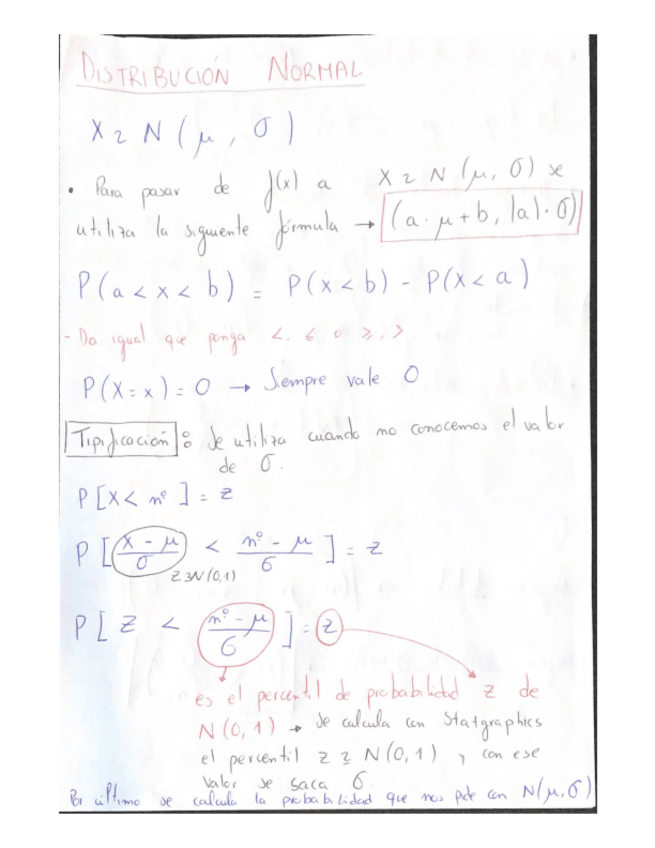 DISTRIBUCIÓN NORMAL
X ≈ N (μ, σ)
• Para pasar de f(x) a X ≈ N (μ, σ) se
utiliza la siguiente fórmula → (a·μ+b, |a|·σ)
P(a < x < b) = P(x < b) - P(X < a)
- Da igual que ponga <, ≤ o ≥, >
P(X = x) = 0 → Siempre vale 0
Tipificación: Se utiliza cuando no conocemos el valor
de σ.
P[X < nº] = z
P[(x - μ)/σ < (nº - μ)/σ] = z
Z ≈ N(0,1)
P[Z < (nº - μ)/σ] = z
es el percentil de probabilidad z de
N(0,1) → Se calcula con Statgraphics
el percentil z ≈ N(0,1) y con ese
valor se saca σ.
Por último se calcula la probabilidad que nos pide con N(μ,σ)